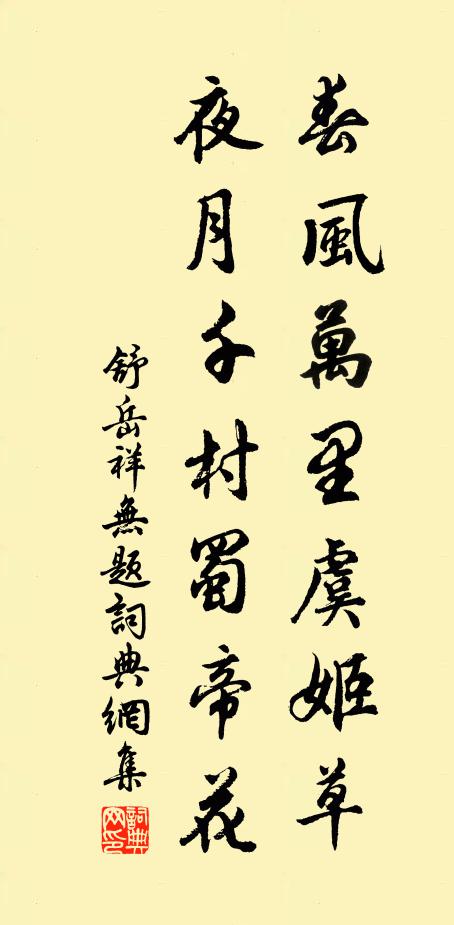 春風萬里虞姬草
夜月千村蜀帝花
舒岳祥無題詞典網集
詞典
网印